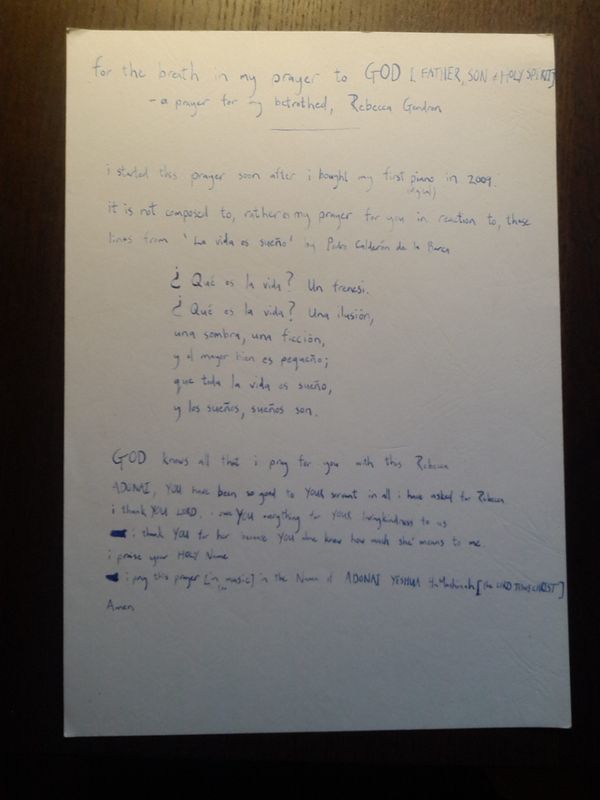 for the breath in my prayer to GOD [FATHER, SON & HOLY SPIRIT]
- a prayer for my betrothed, Rebecca Gendron
i started this prayer soon after i bought my first piano in 2009.
(digital)
it is not composed to, rather is my prayer for you in reaction to, these
lines from 'La vida es sueño' by Pedro Calderón de la Barca
¿ Qué es la vida? Un frenesi.
¿ Qué es la vida? Una ilusión,
una sombra, una ficción,
y el mayor bien es pequeño;
que toda la vida es sueño,
y los sueños, sueños son.
GOD knows all that i pray for you with this Rebecca
ADONAI, YOU have been so good to YOUR servant in all i have asked for Rebecca
i thank YOU LORD. i owe YOU everything for YOUR lovingkindness to us
i thank YOU for her because YOU alone know how much she means to me.
i praise your HOLY Name
i pray this prayer [in music] in the Name of ADONAI YESHUA HaMashiach [the LORD JESUS CHRIST]
Amen